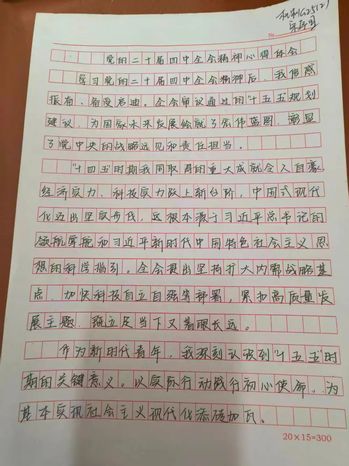 No.
党的二十届四中全会精神心得体会
学习党的二十届四中全会精神后，我倍感
振奋、备受启迪。全会审议通过的“十五五”规划
建议，为国家未来发展绘就了宏伟蓝图，彰显
了党中央的战略远见和责任担当。
“十四五”时期我国取得的重大成就令人自豪
经济实力、科技实力跃上新台阶，中国式现代
化迈出坚实步伐，这根本在于习近平总书记的
领航掌舵和习近平新时代中国特色社会主义思
想的科学指引。全会提出坚持扩大内需战略基
点、加快科技自立自强等部署，紧扣高质量发
展主题，既立足当下又着眼长远。
作为新时代青年，我深刻认识到“十五五”时
期的关键意义。以实际行动践行初心使命，为
基本实现社会主义现代化添砖加瓦。
20×15=300